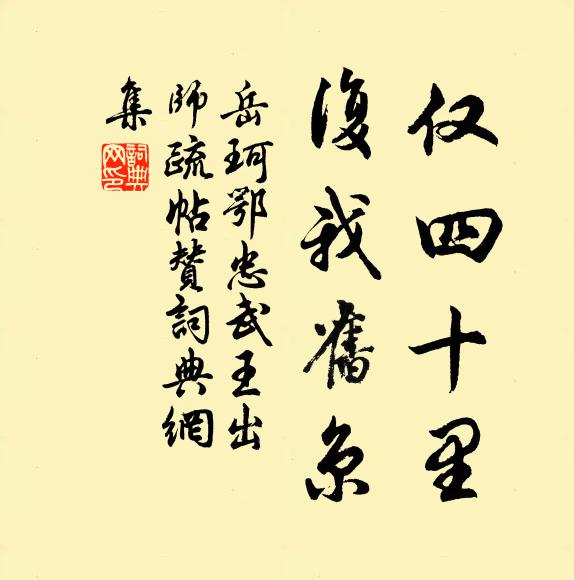 仅四十里
復我舊京
岳珂鄂忠武王出
師疏帖贊詞典網
集
詞典
网印